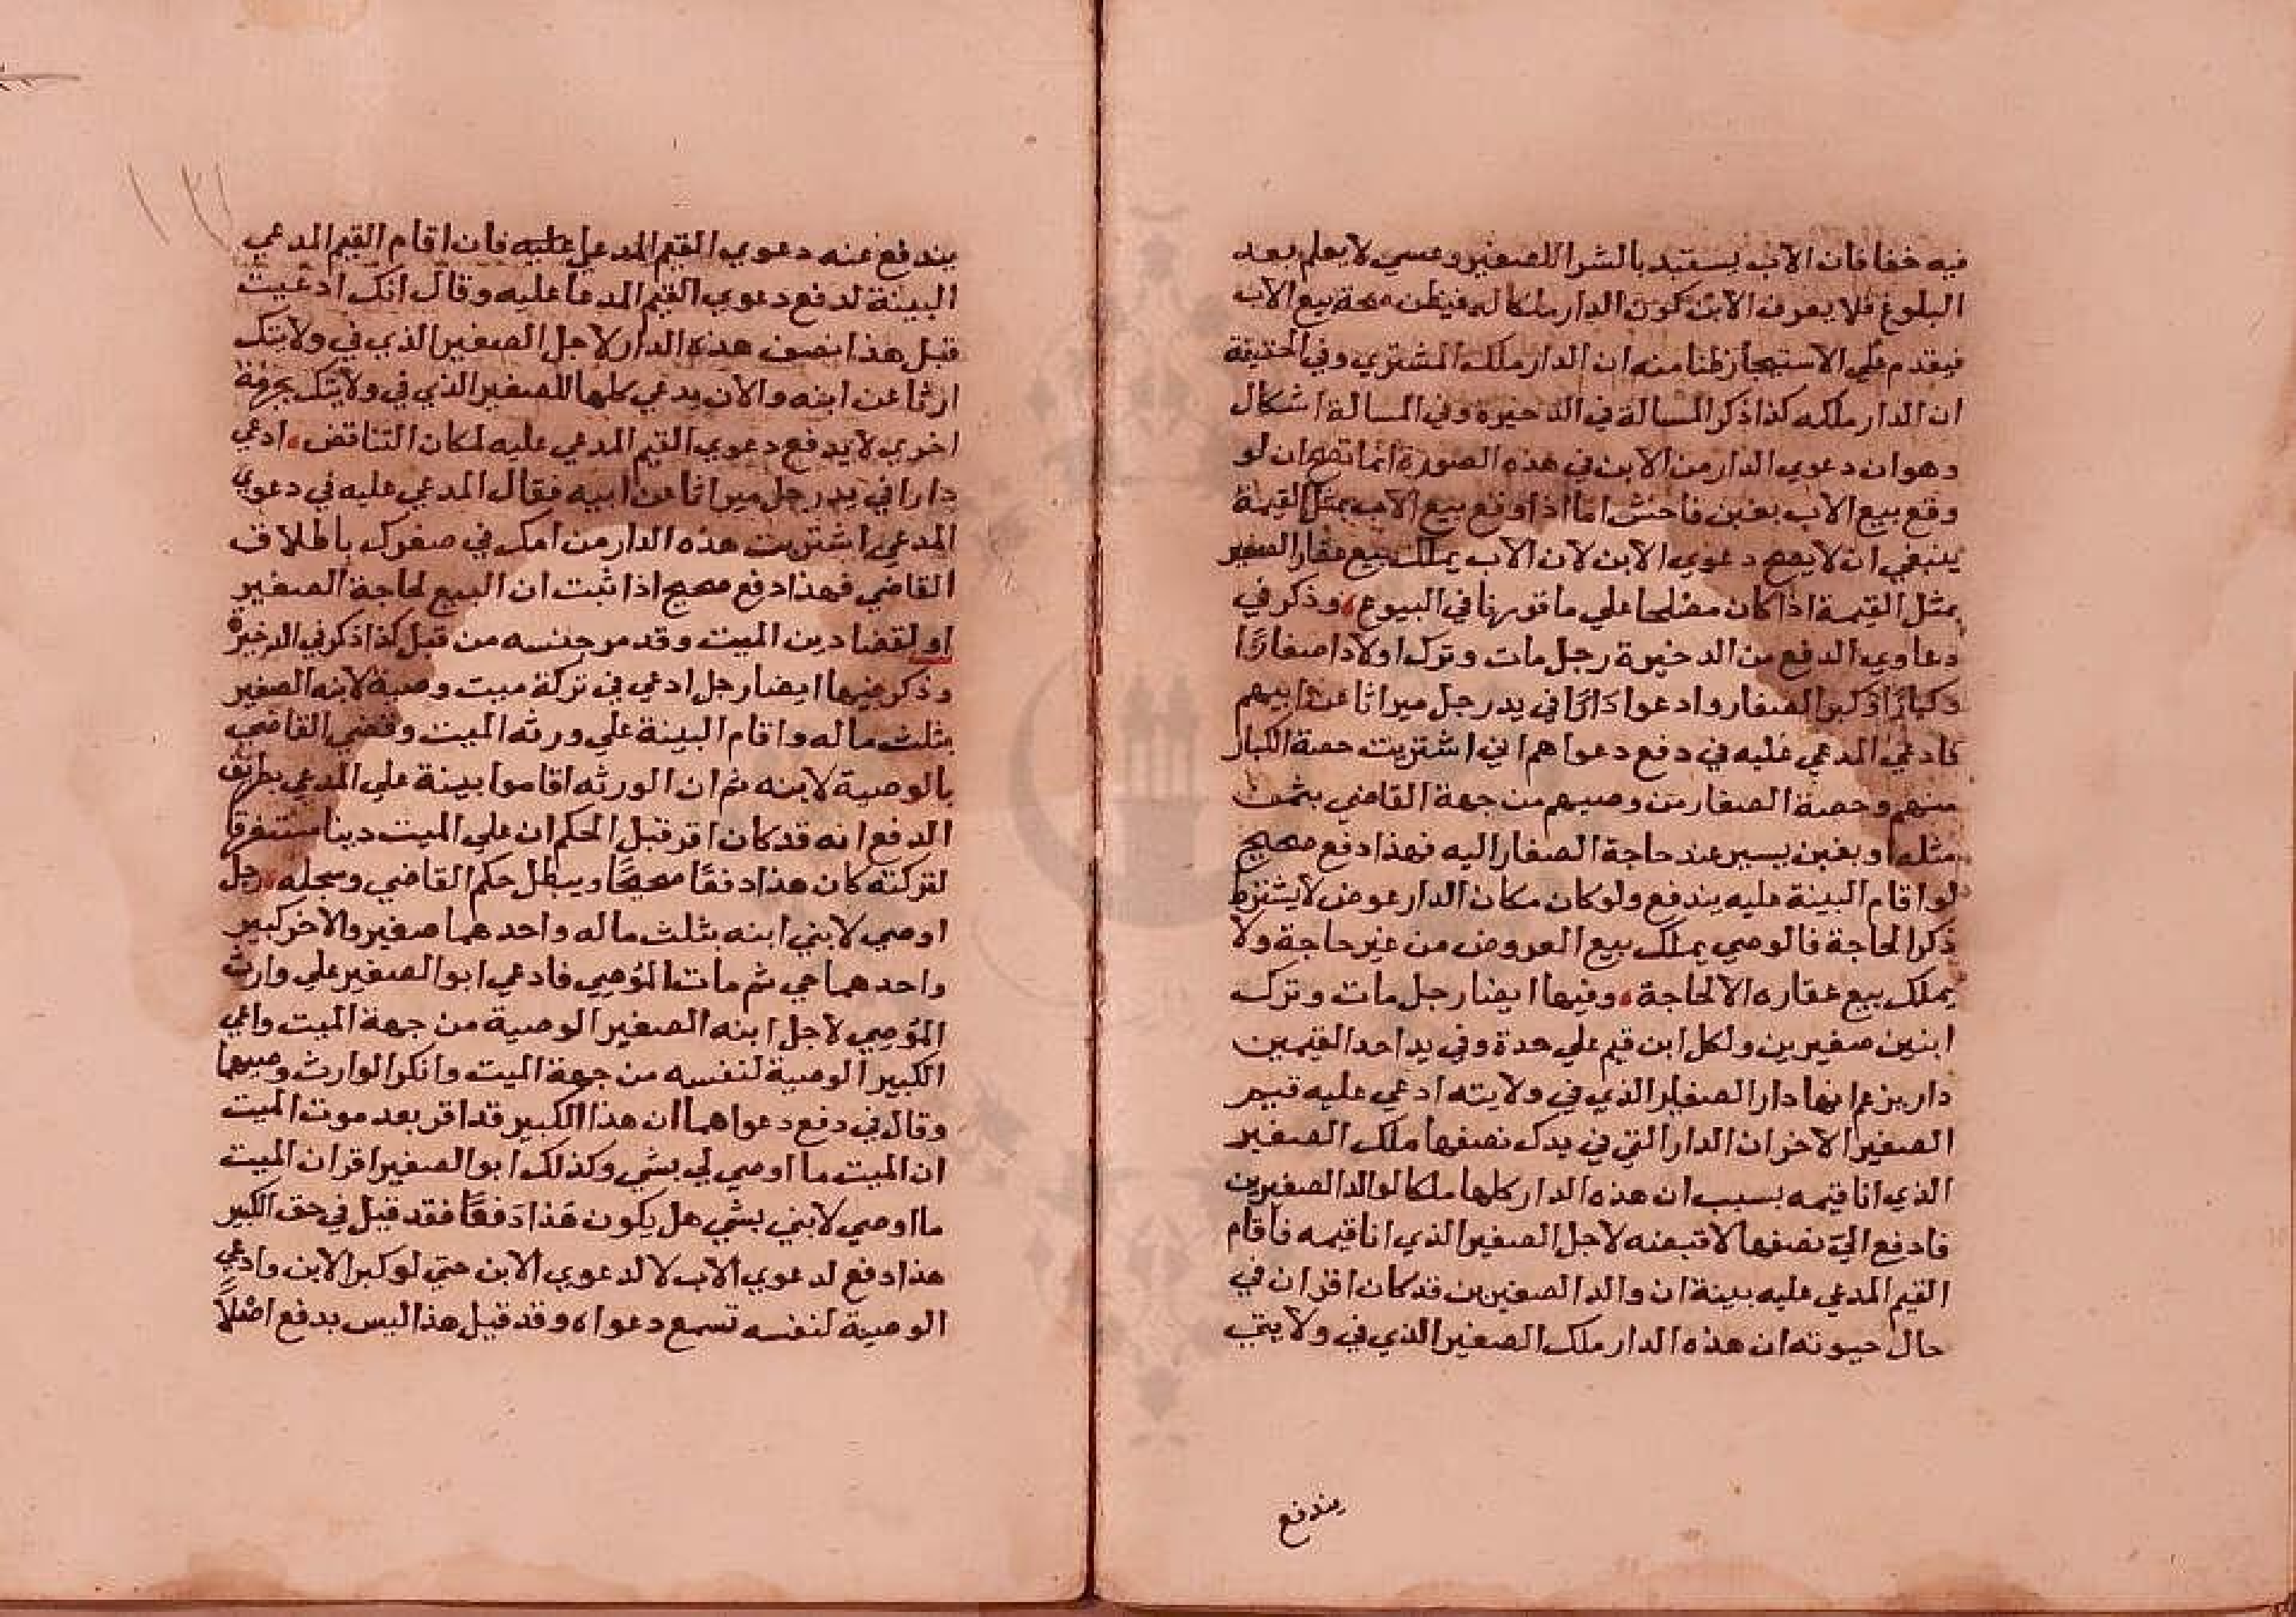 فيه خفا فان الاب يستبد بالشرا للصغير وعسي لا يعلم بعد
البلوغ فلا يعرف الابن كون الدار ملكا له فيظن صحة بيع الاب
فيقدم علي الاستيجار ظنا منه ان الدار ملك المشتري وفي الحقيقة
ان الدار ملكه كذا ذكر المسالة في الذخيرة وفي المسالة اشكال
وهو ان دعوي الدار من الابن في هذه الصورة انما تصح ان لو
وقع بيع الاب بغبن فاحش اما اذا وقع بيع الاب بمثل القيمة
ينبغي ان لا يصح دعوي الابن لان الاب يملك بيع عقار الصغير
بمثل القيمة اذا كان مصلحا علي ما قررنا في البيوع وذكر في
دعاوي الدفع من الدخيرة رجل مات وترك اولادا صغارًا
وكبارًا وكبر الصغار وادعوا دَارًا في يد رجل ميراثا عن ابيهم
فادعي المدعي عليه في دفع دعواهم اني اشتريت حصة الكبار
منهم وحصة الصغار من وصيهم من جهة القاضي بثمن
مثله او بغبن يسير عند حاجة الصغار اليه فهذا دفع صحيح
لو اقام البينة عليه يندفع ولو كان مكان الدار عوض لا يشترط
ذكر الحاجة فالوصي يملك بيع العروض من غير حاجة ولا
يملك بيع عقاره الا لحاجة وفيها ايضا رجل مات وترك
ابنين صغيرين ولكل ابن قيم علي حدة وفي يد احد القيمين
دار يزعم انها دار الصغير الذي في ولايته ادعي عليه قيم
الصغير الاخر ان الدار التي في يدك نصفها ملك الصغير
الذي انا قيمه بسبب ان هذه الدار كلها ملكا لوالد الصغيرين
فادفع اليّ نصفها لاقبضه لاجل الصغير الذي انا قيمه فاقام
القيم المدعي عليه بينة ان والد الصغيرين قد كان اقر ان في
حال حيوته ان هذه الدار ملك الصغير الذي في ولايتي
يندفع
يندفع عنه دعوي القيم المدعي عليه فان اقام القيم المدعي
البينة لدفع دعوي القيم المدعا عليه وقال انك ادعيت
قبل هذا نصف هذه الدار لاجل الصغير الذي في ولايتك
ارثا عن ابنه والان يدعي كلها للصغير الذي في ولايتك بجهة
اخري لا يدفع دعوي القيم المدعي عليه لمكان التناقض ادعي
دارا في يد رجل ميراثا عن ابيه فقال المدعي عليه في دعوي
المدعي اشتريت هذه الدار من امك في صغرك باطلاق
القاضي فهذا دفع صحيح اذا ثبت ان البيع لحاجة الصغير
او لقضا دين الميت وقد مر جنسه من قبل كذا ذكر في الدخيرة
وذكر فيها ايضا رجل ادعي في تركة ميت وصية لابنه الصغير
بثلث ماله واقام البينة علي ورثه الميت وقضي القاضي
بالوصية لابنه ثم ان الورثه اقاموا بينة علي المدعي بطريق
الدفع انه قد كان اقر قبل الحكم ان علي الميت دينا مستغرقا
لتركته كان هذا دفعًا صحيحًا ويبطل حكم القاضي وسجله رجل
اوصي لابني ابنه بثلث ماله واحدهما صغير والاخر كبير
واحدهما حي ثم مات المُوصِي فادعي ابو الصغير علي وارث
المُوصِي لاجل ابنه الصغير الوصية من جهة الميت وادعي
الكبير الوصية لنفسه من جهة الميت وانكر الوارث وصيتهما
وقال في دفع دعواهما ان هذا الكبير قد اقر بعد موت الميت
ان الميت ما اوصي لي بشي وكذلك ابو الصغير اقر ان الميت
ما اوصي لابني بشي هل يكون هَذا دَفعًا فقد قيل في حق الكبير
هذا دفع لدعوي الاب لا لدعوي الابن حتي لو كبر الابن وادعي
الوصية لنفسه تسمع دعواه وقد قيل هذا ليس بدفع اصْلاً